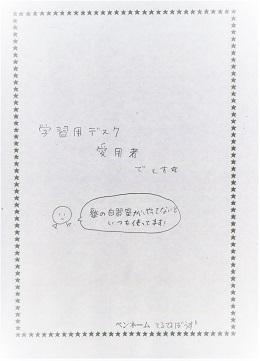 学習用デスク
愛用者
でーす☆
塾の自習室がいやでないと
いつも使ってます!
ペンネーム てるてるぼうず